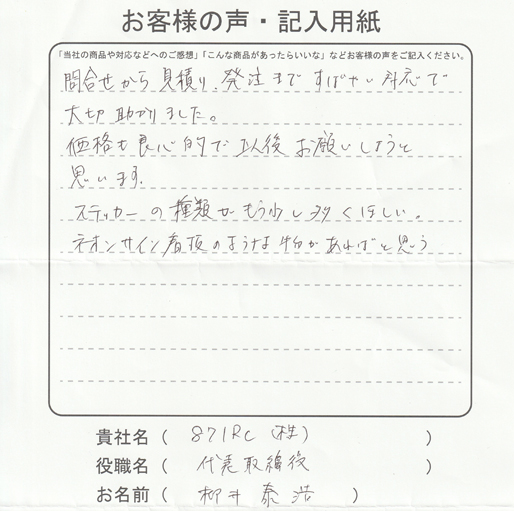 お客様の声・記入用紙
「当社の商品や対応などへのご感想」「こんな商品があったらいいな」などお客様の声をご記入ください。
問合せから見積り、発注まですばやい対応で
大切助かりました。
価格も良心的で以後お願いしようと
思います。
ステッカーの種類がもう少し多くほしい。
ネオンサイン看板のような物があればと思う
貴社名( 871RC(株) )
役職名( 代表取締役 )
お名前( 柳井泰浩 )